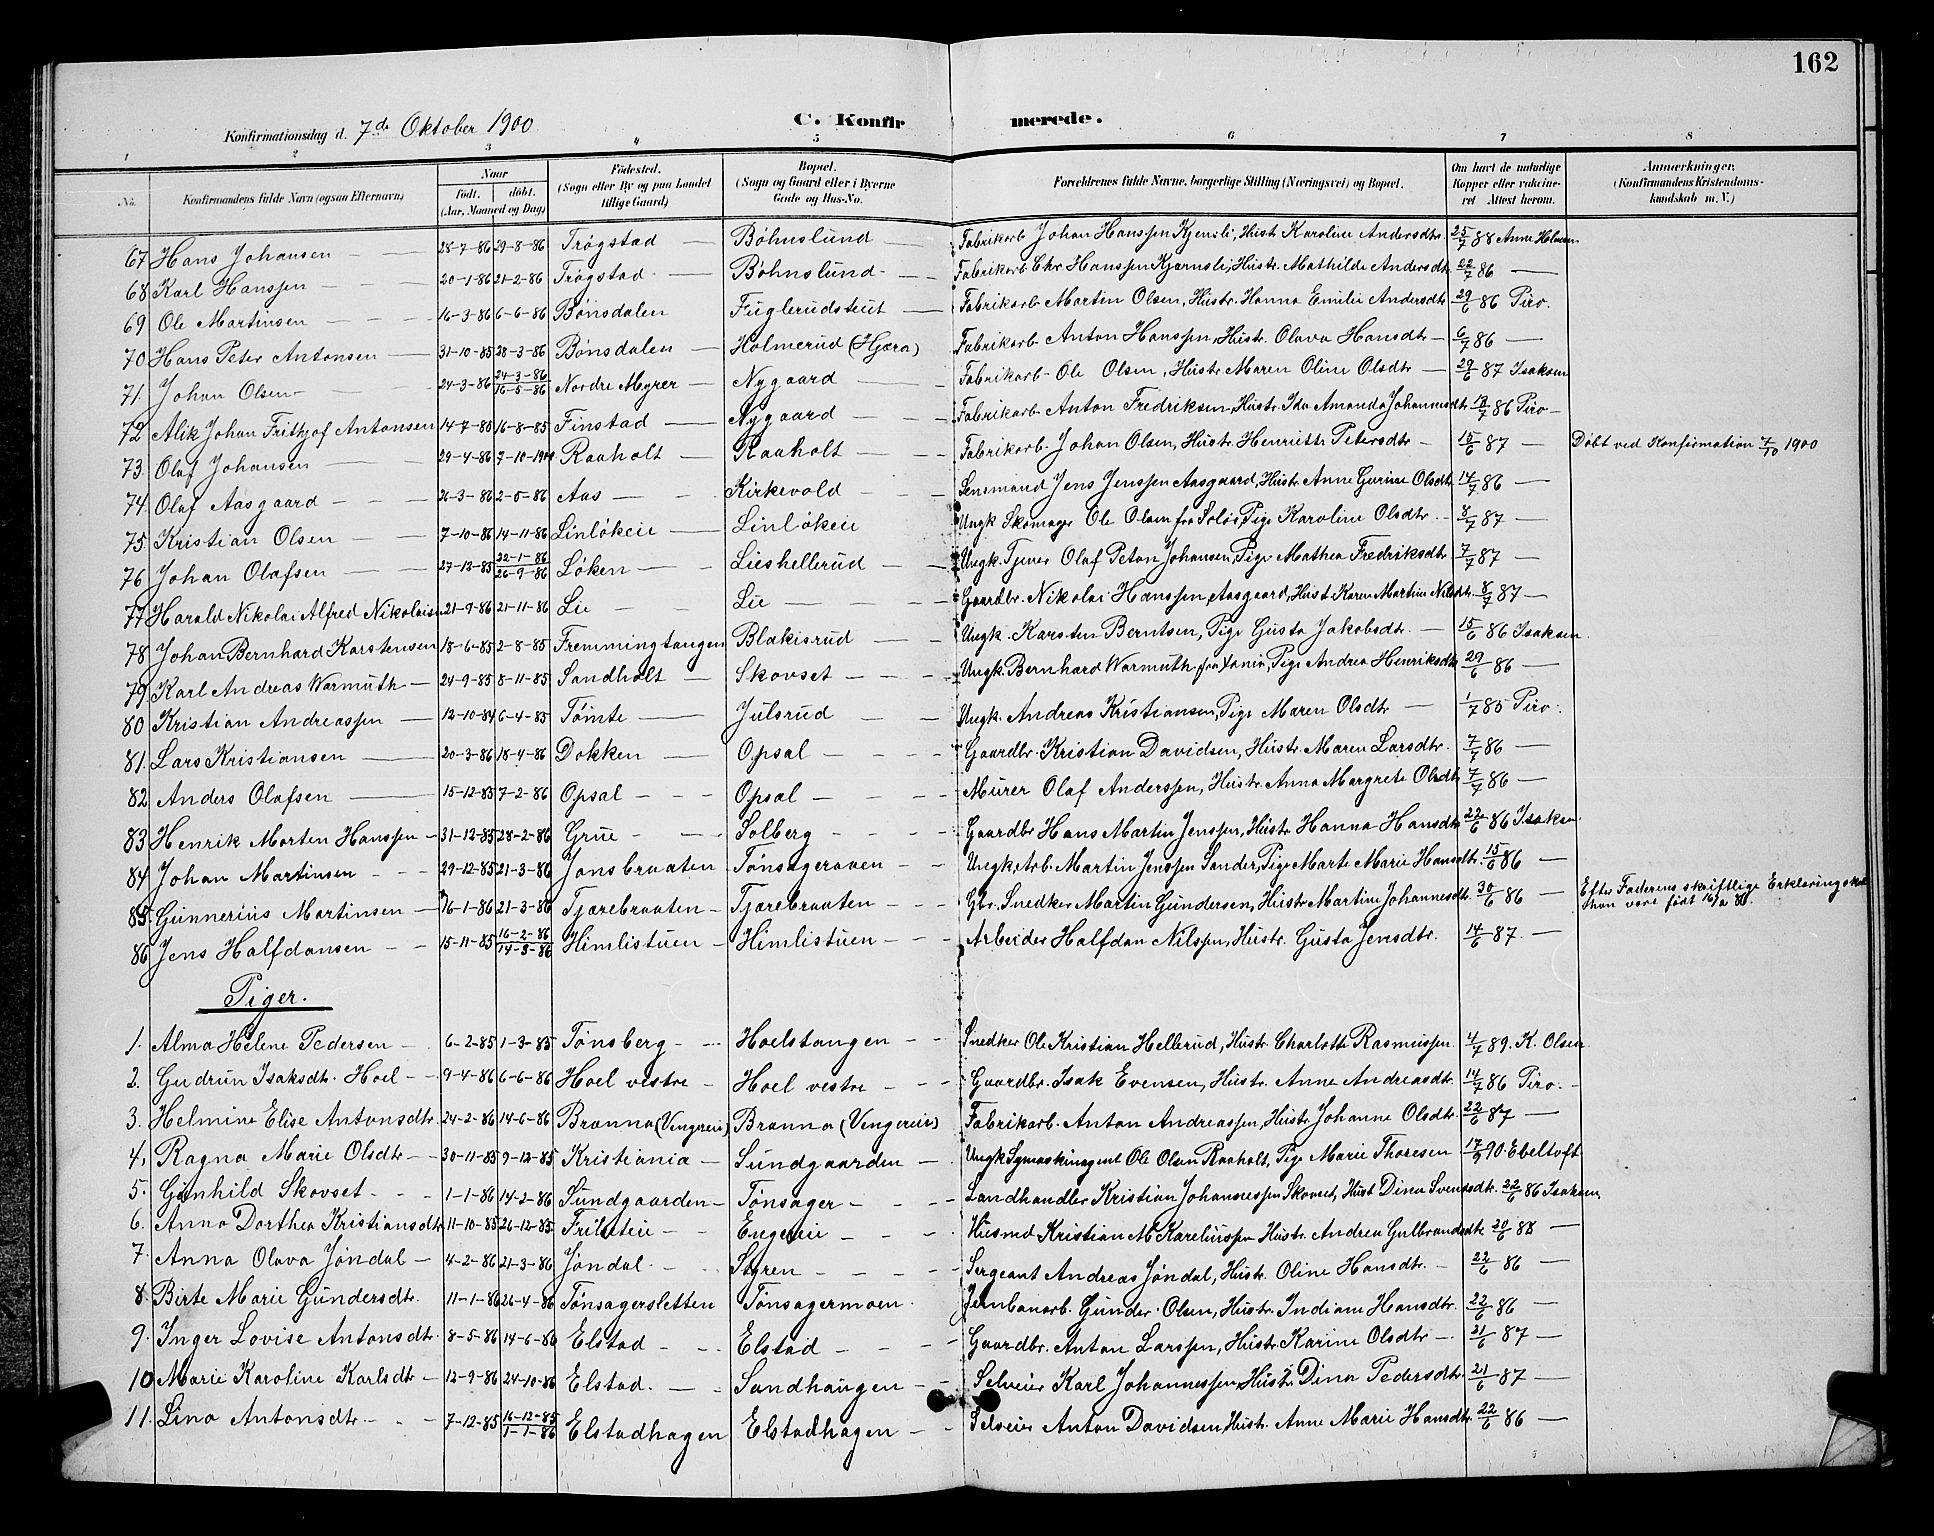 162
Konfirmationsdag d. 7de Oktober 1900 C. Konfir merede.
1 2 3 4 5 6 7 8
No. Konfirmandens fulde Navn (ogsaa Efternavn) Naar født. døbt. (Aar, Maaned og Dag) Fødested. (Sogn eller By og paa Landet tillige Gaard) Bopæl. (Sogn og Gaard eller i Byerne Gade og Hus-No. Forældrenes fulde Navne, borgerlige Stilling (Næringsvei) og Bopæl. Om havt de naturlige Kopper eller vaccineret Attest herom. Anmærkninger. (Konfirmandens Kristendomskundskab m. V.)
67 Hans Johansen 28-7-86 29-8-86 Trøgstad Bøhnslund Fabrikarb Johan Hanssen Kjensli, Hustr. Karoline Andersdtr. 25/7 88 Anne Holmsen
68 Karl Hanssen 20-1-86 21-2-86 Trøgstad Bøhnslund Fabrikarb. Chr Hanssen Kjærnsli, Hustr. Mathilde Andersdtr. 22/7 86 —
69 Ole Martinsen 16-3-86 6-6-86 Bønsdalen Fuglerudsteut Fabrikarb Martin Olsen, Hustr. Hanna Emilie Andersdtr 29/6 86 Piro.
70 Hans Peter Antonsen 31-10-85 28-3-86 Bønsdalen Holmerud (Hjæra) Fabrikarb Anton Hanssen, Hustr. Olava Hansdtr 6/7 86 —
71. Johan Olsen 24-3-86 24-3-86 16-5-86 Nordre Myrer Nygaard Fabrikarb. Ole Olsen, Hustr Maren Oline Olsdtr 29/6 87 Isaksen
72 Alik Johan Frithjof Antonsen 14-7-85 16-8-85 Finstad Nygaard Fabrikarb Anton Fredriksen, Hustr. Ida Amanda Johannesdtr 13/7 86 Piro
73. Olaf Johansen 29-4-86 7-10-1900 Raaholt Raaholt Fabrikarb. Johan Olsen, Hustr Henriette Petersdtr 15/6 87 — Døbt ved Konfirmation 7/10 1900
74. Olaf Aasgaard 26-3-86 2-5-86 Aas Kirkevold Lensmand Jens Jenssen Aasgaard, Hustr. Anne Gurine Olsdtr 14/7 86 —
75. Kristian Olsen 7-10-86 14-11-86 Linløkeie Linløkeie Ungk Skomager Ole Olsen fra Soløs, Pige Karoline Olsdtr. 8/7 87 —
76 Johan Olafsen 27-12-85 22-1-86 26-9-86 Løken Lieshellerud Ungk. Tjener Olaf Petan Johansen, Pige Mathea Fredriksdtr 7/7 87 —
77 Harald Nikolai Alfred Nikolaisen 21-9-86 21-11-86 Lie Lie Gaardbr. Nikolai Hanssen Aasgaard, Hust Karen Martine Nilsdtr. 8/7 87 —
78 Johan Bernhard Karstensen 18-6-85 2-8-85 Fremmingtangen Blakisrud Ungk. Karsten Berntsen, Pige Gusta Jakobsdtr. 15/6 86 Isaksen
79. Karl Andreas Warmuth 24-9-85 8-11-85 Sandholt Skovset Ungk. Bernhard Warmuth fra Xania, Pige Andrea Henriksdtr 29/6 86 —
80 Kristian Andreassen 12-10-84 6-4-85 Tømte Julsrud Ungk. Andreas Kristiansen, Pige Maren Olsdtr 1/7 85 Piro.
81. Lars Kristiansen 20-3-86 18-4-86 Dokken Opsal Gaardbr. Kristian Davidsen, Hustr. Maren Larsdtr. 7/7 86 —
82. Anders Olafsen 15-12-85 7-2-86 Opsal Opsal Murer Olaf Anderssen, Hustr. Anna Margrete Olsdtr 7/7 86 —
83 Henrik Morten Hanssen 31-12-85 28-2-86 Grue Solberg Gaardbr Hans Martin Jenssen, Hustr Hanna Hansdtr 22/6 86 Isaksen
84 Johan Martinsen 29-12-85 21-3-86 Jonsbraaten Tønsageraven Ungk, Arb. Martin Jenssen Sander, Pige Marte Marie Hansdtr. 15/6 86 —
85. Gunnerius Martinsen 16-1-86 21-3-86 Tjærebraaten Tjærebraaten Gbr. Snedker Martin Gundersen, Hustr Martine Johannesdtr 30/6 86 — Efter Faderens skriftlige Erklæring skal
han være født
86 Jens Halfdansen 15-11-85 16-2-86 14-3-86 Himlistuen Himlistuen Arbeider Halfdan Nilssen, Hustr. Gusta Jensdtr. 14/6 87. —
Piger.
1. Alma Helene Pedersen 6-2-85 1-3-85 Tønsberg Hoelstangen Snedker Ole Kristian Hellerud, Hustr. Charlotte Rasmussen 4/7 89. K. Olsen
2. Gudrun Isaksdtr. Hoel 9-4-86 6-6-86 Hoel vestre Hoel vestre Gaardbr. Isak Evensen, Hustr. Anne Andreasdtr. 14/7 86 Piro.
3. Helmine Elise Antonsdtr 24-2-86 14-6-86 Brænna (Vengereie) Brænna (Vengereie) Fabrikarb. Anton Andreassen, Hustr Johanne Olsdtr. 22/6 87 —
4. Ragna Marie Olsdtr 30-11-85 9-12-85 Kristiania Sundgaarden Ungk Symaskinagent Ole Olsen Raaholt, Pige Marie Thoresen 17/9 90 Ebeltoft
5. Gunhild Skovset 1-1-86 14-2-86 Sundgaarden Tønsager Landhandler Kristian Johannessen Skovset, Hust Dina Svensdtr. 22/6 86 Isaksen
6. Anna Dorthea Kristiansdtr 11-10-85 26-12-85 Engereie Husmd Kristian M Kareliussen Hustr. Andrea Gulbrandsdtr 20/6 88 —
7. Anna Olava Jøndal 4-2-86 21-3-86 Jøndal Styren Sergeant Andreas Jøndal, Hustr. Oline Hansdtr. 22/6 86 —
8. Birte Marie Gundersdtr. 11-1-86 26-4-86 Tønsagersletten Tønsagermoen Jernbanarb. Gunder Olsen, Hustr. Indiane Hansdtr. 22/6 86 —
9. Inger Lovise Antonsdtr. 8-5-86 14-6-86 Elstad Elstad Gaardbr. Anton Larssen, Hustr Karine Olsdtr 21/6 87 —
10 Marie Karoline Karlsdtr 12-9-86 24-10-86 Elstad Sandhaugen Selveier Karl Johannessen, Hustr Dina Pedersdtr. 21/6 87 —
11. Lina Antonsdtr 7-12-85 16-12-85 1-1-86 Elstadhagen Elstadhagen Selveier Anton Davidsen, Hustr. Anne Marie Hansdtr. 22/6 86 —